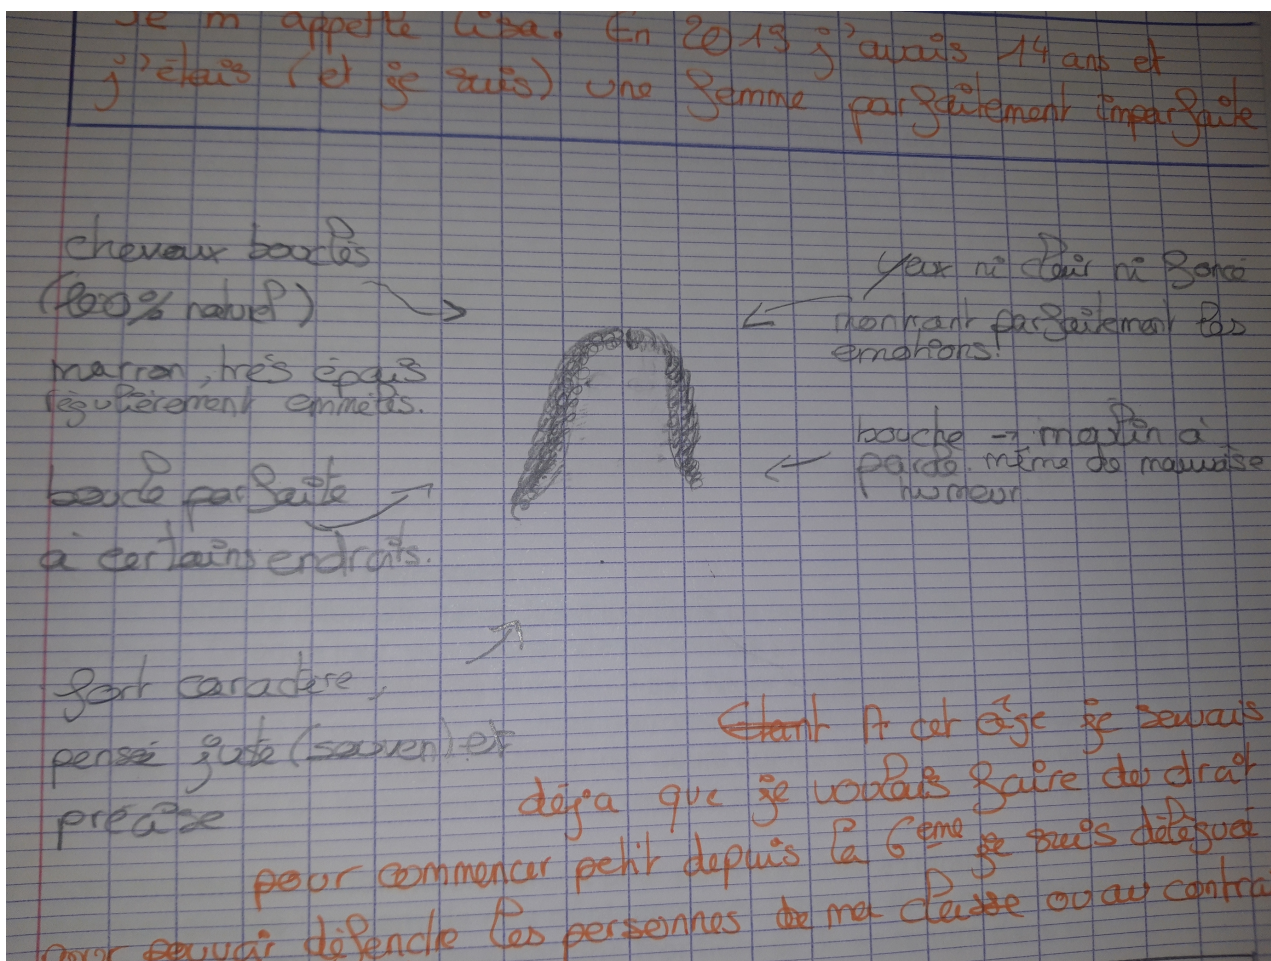 Je m'appelle Lisa. En 2019 j'avais 14 ans et
j'étais (et je suis) une femme parfaitement imparfaite
cheveux bouclés
(100% naturel)
marron, très épais
régulièrement emmêlés.
boucle parfaite
à certains endroits.
fort caractère,
pensé juste (souven) et
précise
yeux ni clair ni foncé
montrant parfaitement les
emotions.
bouche → malin à
parole même de mauvaise
humeur
Etant A cet âge je sevais
déja que je voulais faire des droit
pour commencer petit depuis la 6ème je suis délégué
pour pouvoir défendre les personnes de ma classe ou au contra